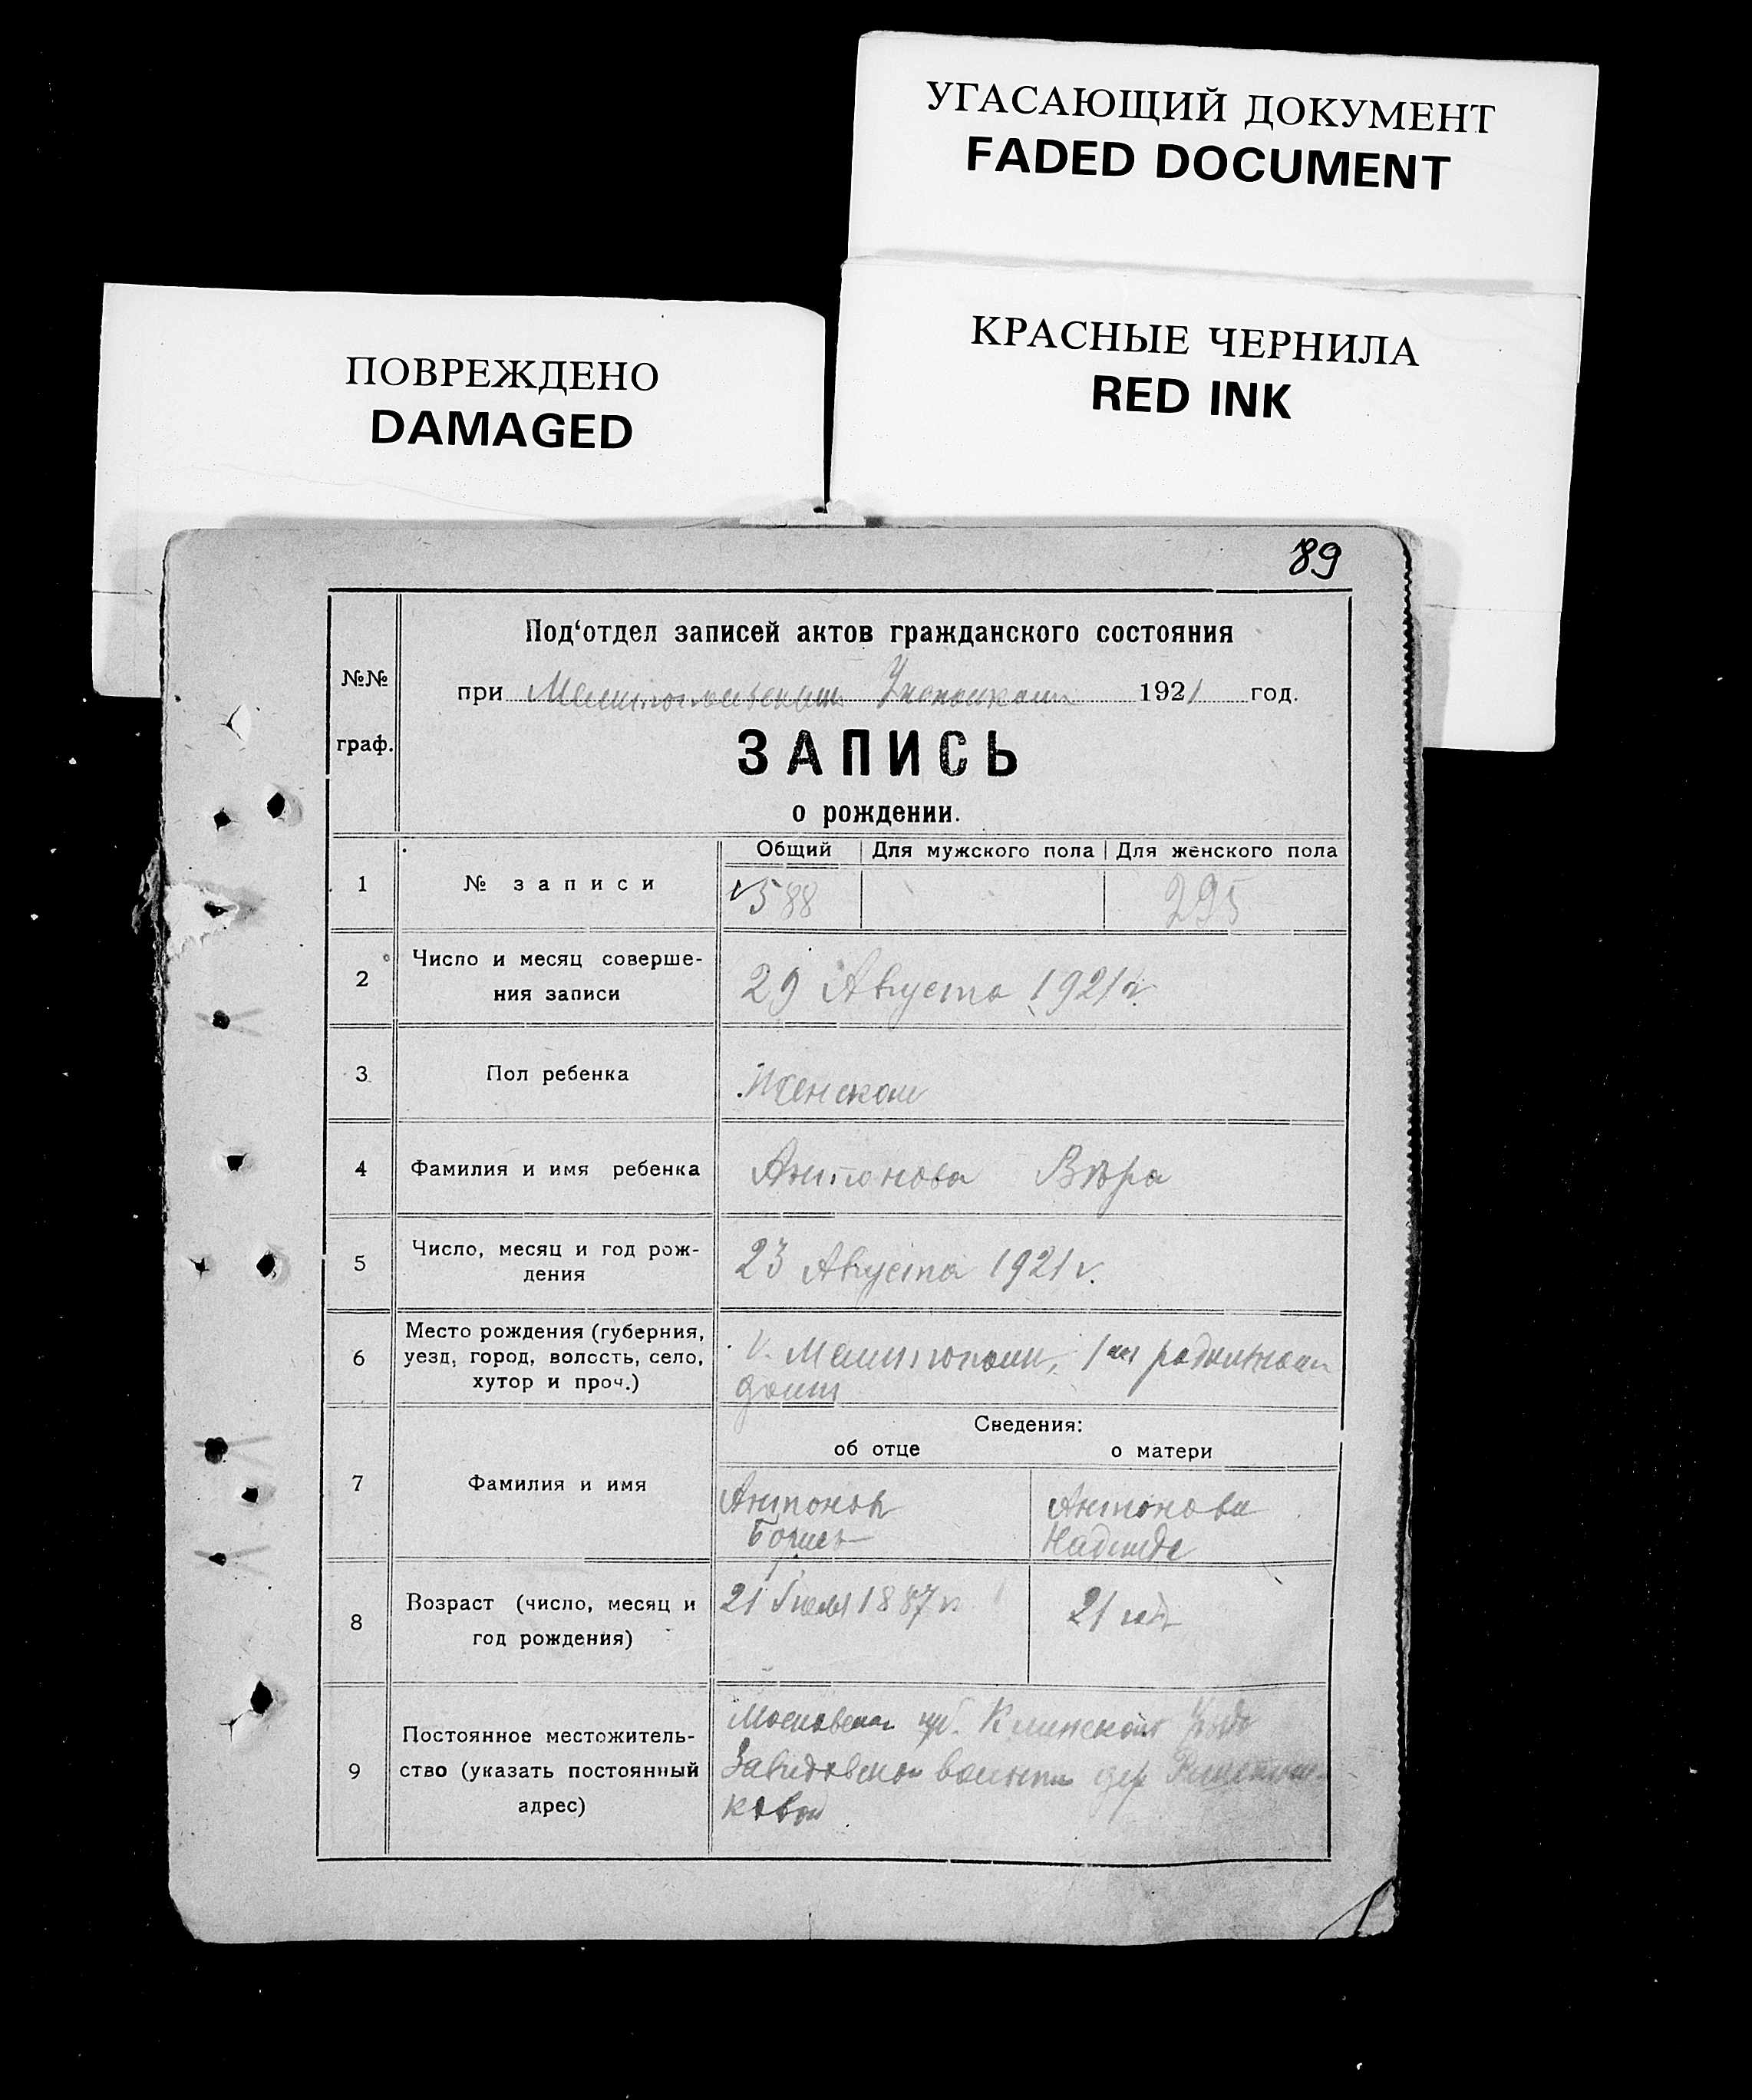 УГАСАЮЩИЙ ДОКУМЕНТ
FADED DOCUMENT
КРАСНЫЕ ЧЕРНИЛА
RED INK
ПОВРЕЖДЕНО
DAMAGED
89
№№ граф.
Под‘отдел записей актов гражданского состояния
при 1921 год.
ЗАПИСЬ
о рождении.
Общий Для мужского пола Для женского пола
1 № записи 588 295
2 Число и месяц соверше-
ния записи 29 Августа 1921 г.
3 Пол ребенка Женской
4 Фамилия и имя ребенка Антонова Вѣра
5 Число, месяц и год рож-
дения 23 Августа 1921 г.
6 Место рождения (губерния,
уезд, город, волость, село,
хутор и проч.) г. Мелитополь, 1й
Сведения:
об отце о матери
7 Фамилия и имя Антонов Антонова
Борис
8 Возраст (число, месяц и
год рождения) 21 1887 г. 21 год
9 Постоянное местожитель-
ство (указать постоянный
адрес) Московская губ. Клинского
Завидовской волости дер.
ковой